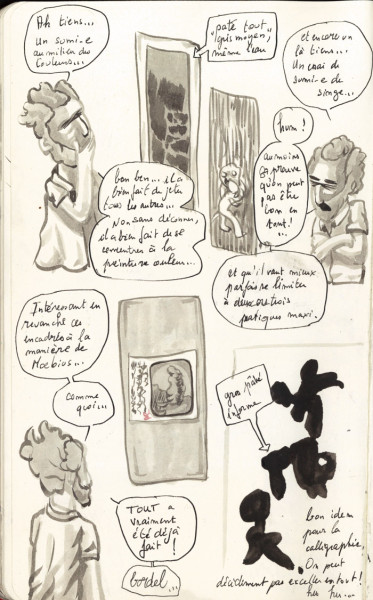 Ah tiens...
Un sumi-e
au milieu des
couleurs...
pâté tout
gris moyen,
même l'eau
et encore un
là tiens...
Un essai de
sumi-e de
singe...
hum!
au moins
la preuve
qu'on peut
pas être
bon en
tout!
...
bon ben... il a
bien fait de jeter
tous les autres...
Non sans déconner,
il a bien fait de se
concentrer à la
peinture couleur...
et qu'il vaut mieux
parfois se limiter
à deux ou trois
pratiques maxi.
Intéressant en
revanche ces
encadrés à la
manière de
Moebius...
comme
quoi...
TOUT a
vraiment
été déjà
fait!
bordel...
gros pâté
informe
bon idem
pour la
calligraphie,
On peut
décidément pas exceller en tout!